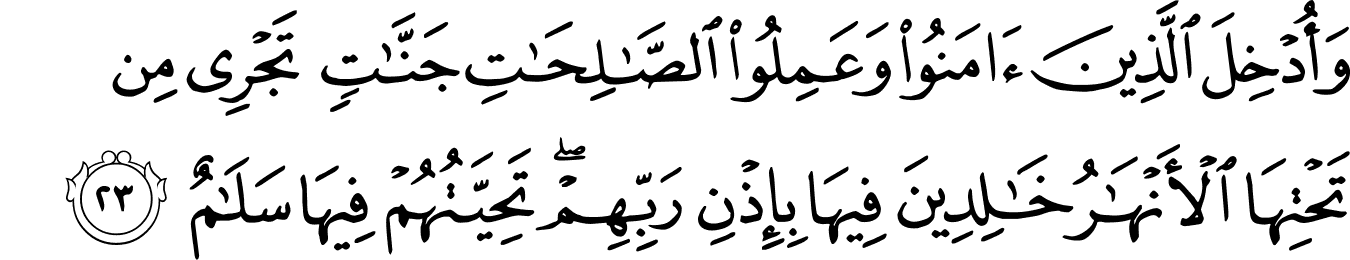 وَأُدۡخِلَ ٱلَّذِينَ ءَامَنُواْ وَعَمِلُواْ ٱلصَّٰلِحَٰتِ جَنَّٰتٖ تَجۡرِي مِن
تَحۡتِهَا ٱلۡأَنۡهَٰرُ خَٰلِدِينَ فِيهَا بِإِذۡنِ رَبِّهِمۡۖ تَحِيَّتُهُمۡ فِيهَا سَلَٰمٌ ٢٣